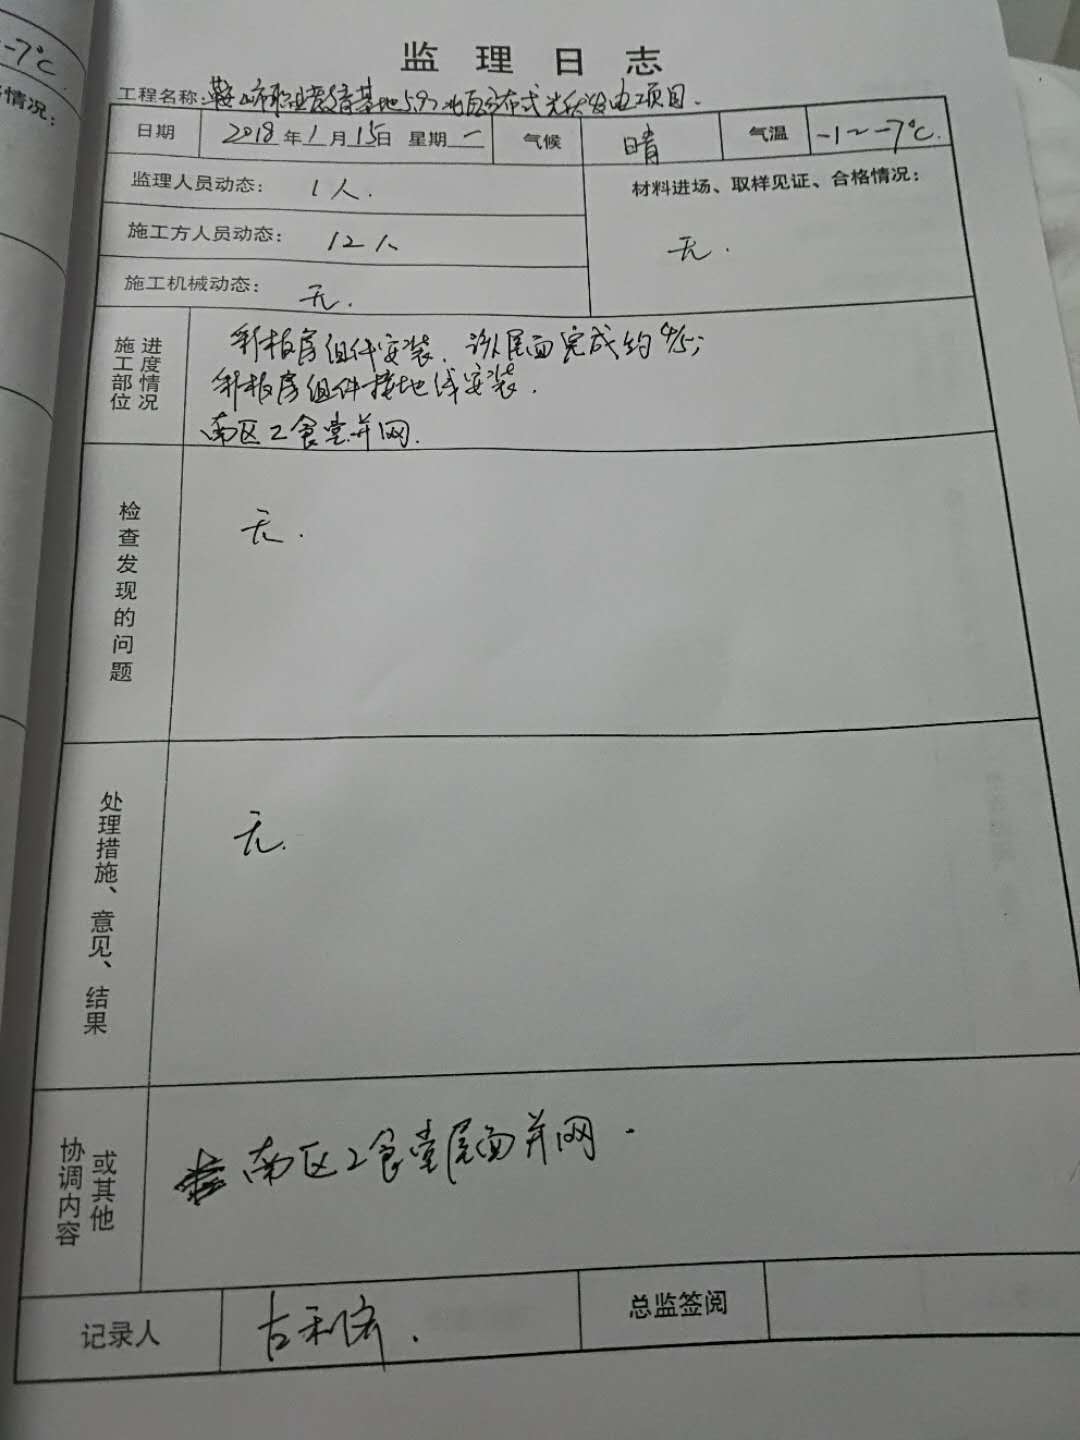 -7℃
情况：
监理日志
工程名称：鞍山市职业教育基地5.97 分布式光伏发电项目.
日期 2018年1月15日 星期一 气候 晴 气温 -1~-7℃.
监理人员动态： 1人.
材料进场、取样见证、合格情况：
施工方人员动态： 12人
无.
施工机械动态： 无.
施工部位 进度情况
彩板房组件安装. 该屋面完成约4/5;
彩板房组件接地线安装.
南区2食堂并网.
检查发现的问题
无.
处理措施、意见、结果
无.
协调内容 或其他
南区2食堂屋面并网.
记录人 古利
总监签阅